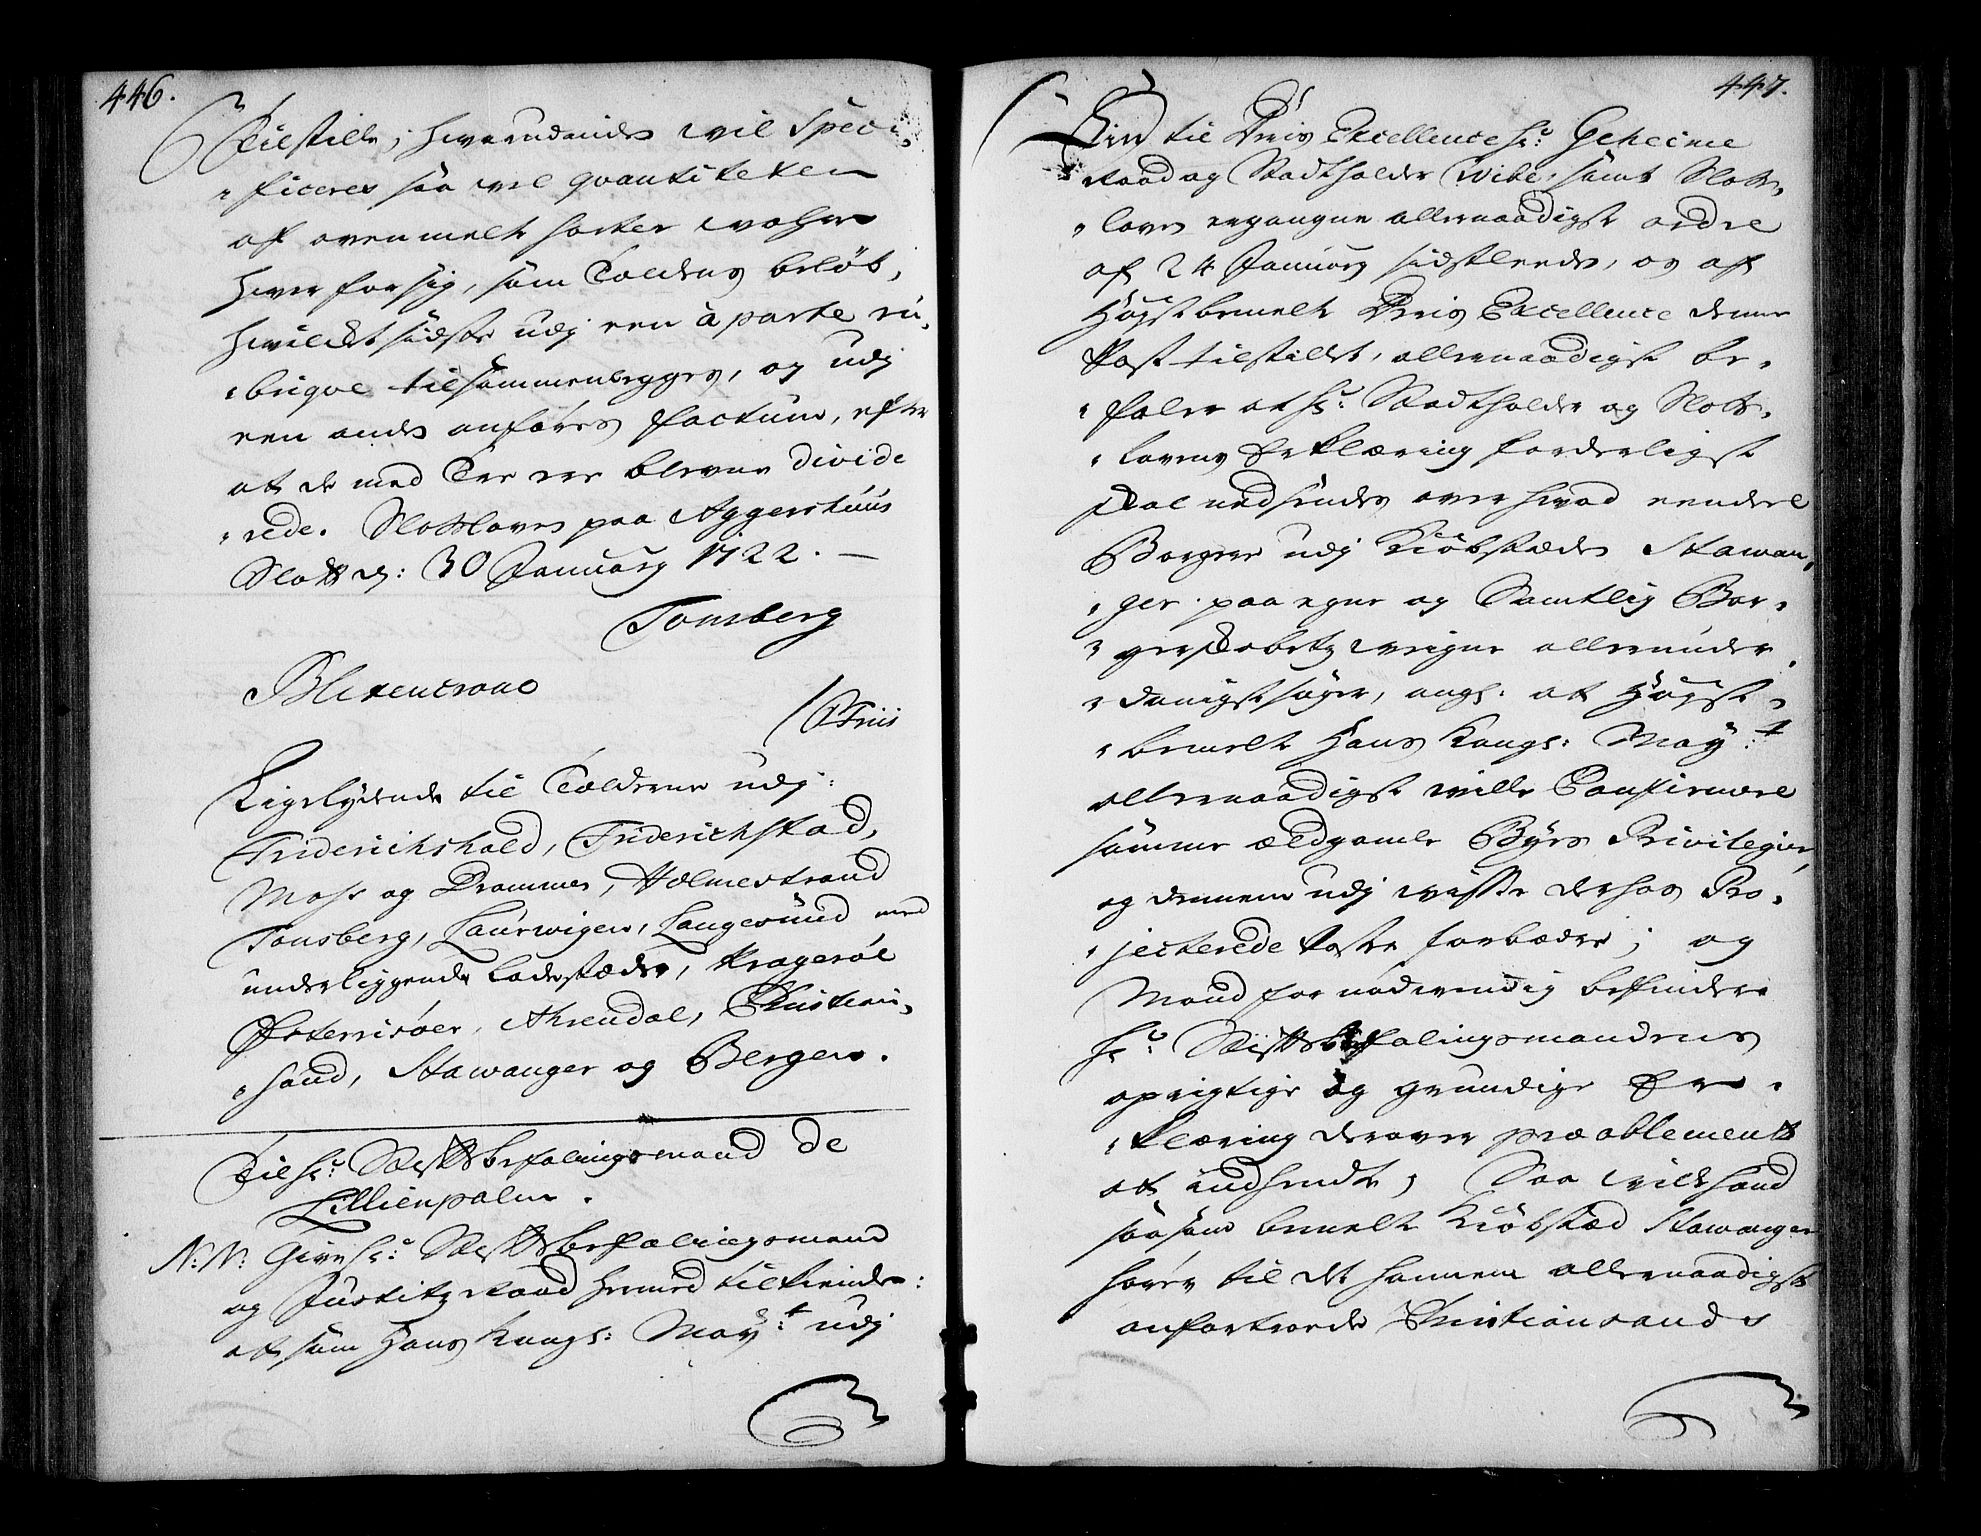 446.
Tilstille, hvorudinden vil Speci-
ficeres saa vel qvantiteten
af ovenmelte sorter vahre
hver for sig, som Toldens beløb,
hvilcket sidste udj een à parte ru-
briqve tilsammenlegges, og udj
een anden anføres factum, efter
at de med Tre ere blevne divide
rede. Slotsloven paa Aggershuus
Slott d: 30 January 1722. —
Tonsberg
Blixencrone
/ OFriis
Ligelydende til Tolderne udj:
Friderichshald, Friderichstad,
Moss og Drammen, Holmestrand
Tonsberg, Laurwigen, Langesund med
underliggende Ladestæder, Kragerøe
Østerrisøer, Ahrendal, Christian-
sand, Stawanger og Bergen.
Til Hr: Stiftsbefalingsmand de
Lillienpalm.
N: N: Give Hr: Stiftsbefalingsmand
og Justitz Raad hermed tilkiende:
at som Hans Kongl: May:t udj
447.
Een til Deris Excellence Hr: Geheime
Raad og Stadtholder Wibe, samt Slots-
loven ergangne allernaadigst ordre
af 24 January sidstleden, og af
Høystbemelte Deris Excellence denne
Post tilstillet, allernaadigst be-
faler at Hr: Stadtholder og Slots-
lovens Erklæring forderligst
skal nedsendes over hvad eendeel
Borgere udj Kiøbstæden Stawan-
ger paa egne og Samtlig Bor-
gerskabetz veigne allerunder-
danigst søger, angl: at Høyst-
bemelte Hans Kongl: May:t
allernaadigst ville Confirmere
samme ældgamle Byes Privilegier,
og dennem udj visse derhos Pro-
jecterede Poster forbædre; og
Mand for nødvendig befinder
Hr: Stiftsbefalingsmandens
oprigtige og grundige Er-
klæring derover præalablement
at indhendte, Saa vilde hand
saasom bemelte Kiøbstæd Stawanger
hører til det hannem allernaadigst
anfortroede Christiansands